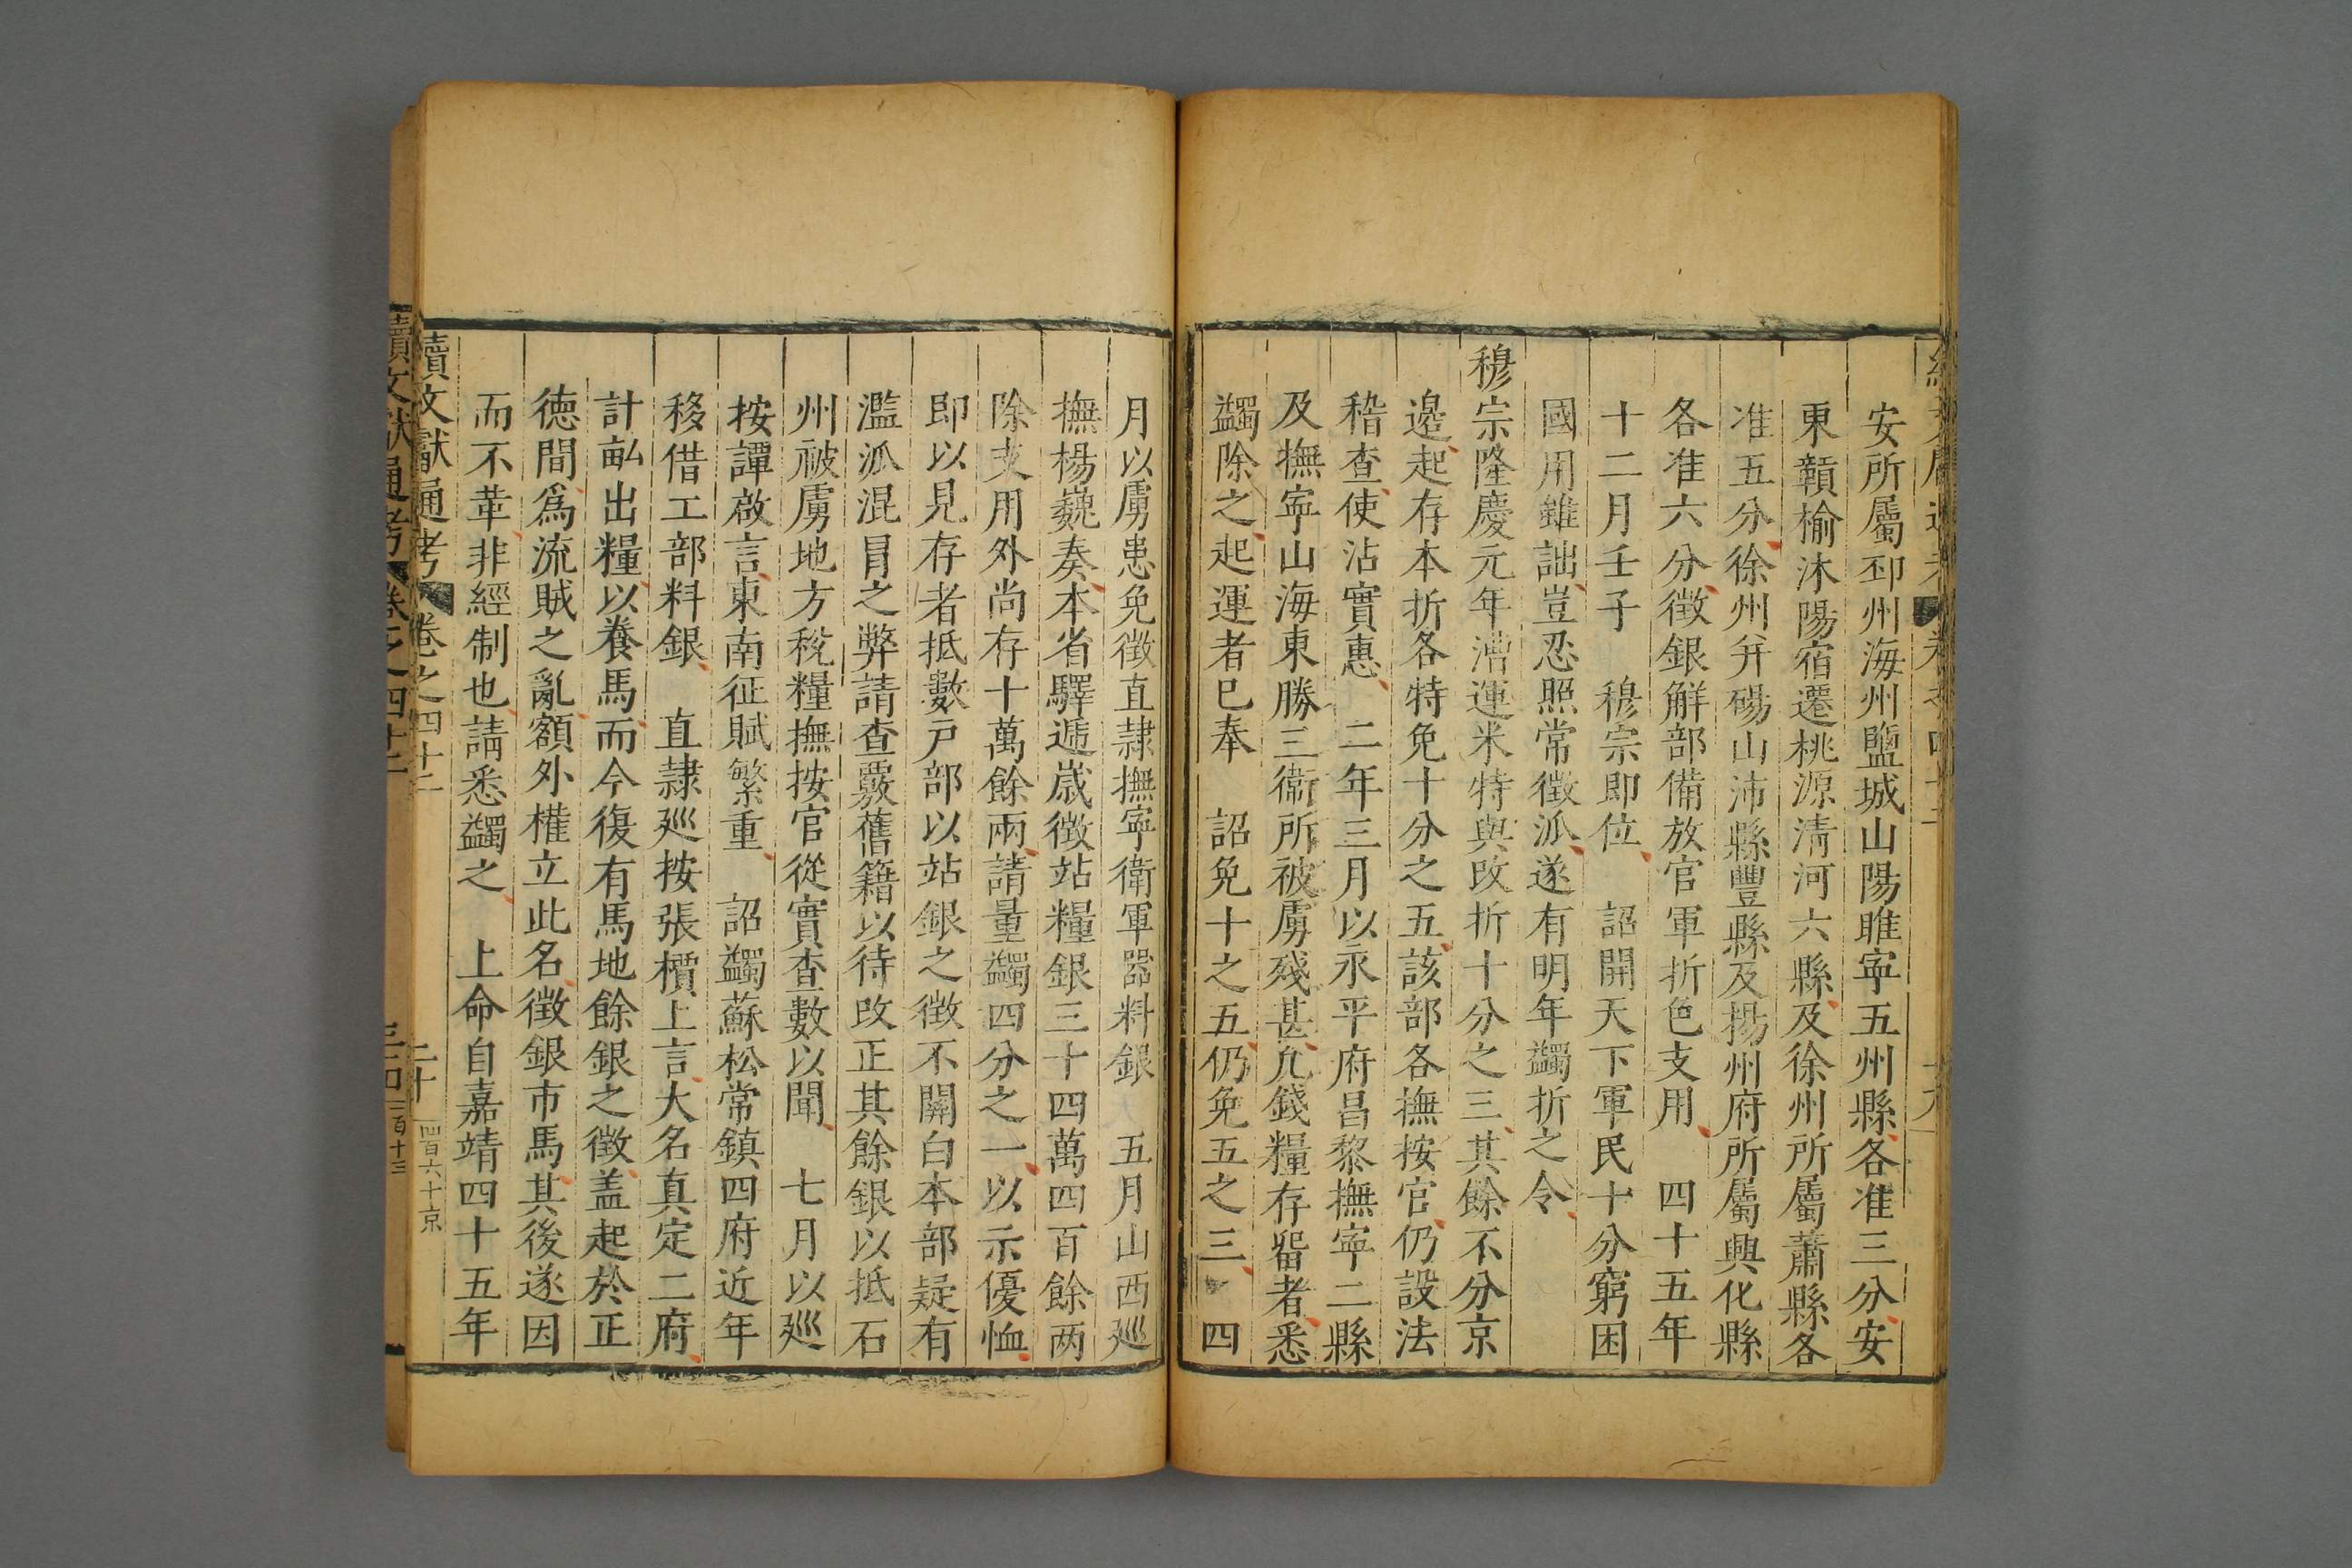 安所屬邳州海州鹽城山陽睢寧五州縣各准三分安
東贛榆沐陽宿遷桃源清河六縣及徐州所屬蕭縣各
准五分徐州并碭山沛縣豐縣及揚州府所屬興化縣
各准六分徵銀解部備放官軍折色支用　四十五年
十二月壬子　穆宗即位　詔開天下軍民十分窮困
國用雖詘豈忍照常徵派遂有明年蠲折之令
穆宗隆慶元年漕運米特與改折十分之三其餘不分京
邊起存本折各特免十分之五該部各撫按官仍設法
稽查使沾實惠　二年三月以永平府昌黎撫寧二縣
及撫寧山海東勝三衛所被虜殘甚凢錢糧存畱者悉
蠲除之起運者已奉　詔免十之五仍免五之三　四
月以虜患免徵直隷撫寧衛軍器料銀　五月山西廵
撫楊巍奏本省驛遞嵗徵站糧銀三十四萬四百餘两
除支用外尚存十萬餘兩請量蠲四分之一以示優恤
即以見存者抵數戸部以站銀之徵不關白本部疑有
濫派混冒之弊請查覈舊籍以待改正其餘銀以抵石
州被虜地方稅糧撫按官從實查數以聞　七月以廵
按譚啟言東南征賦繁重　詔蠲蘇松常鎮四府近年
移借工部料銀　直隷廵按張檟上言大名真定二府
計畝出糧以養馬而今復有馬地餘銀之徵盖起於正
德間爲流賊之亂額外權立此名徵銀市馬其後遂因
而不革非經制也請悉蠲之　上命自嘉靖四十五年
續文獻通考　卷之四十二　二十　四百六十京